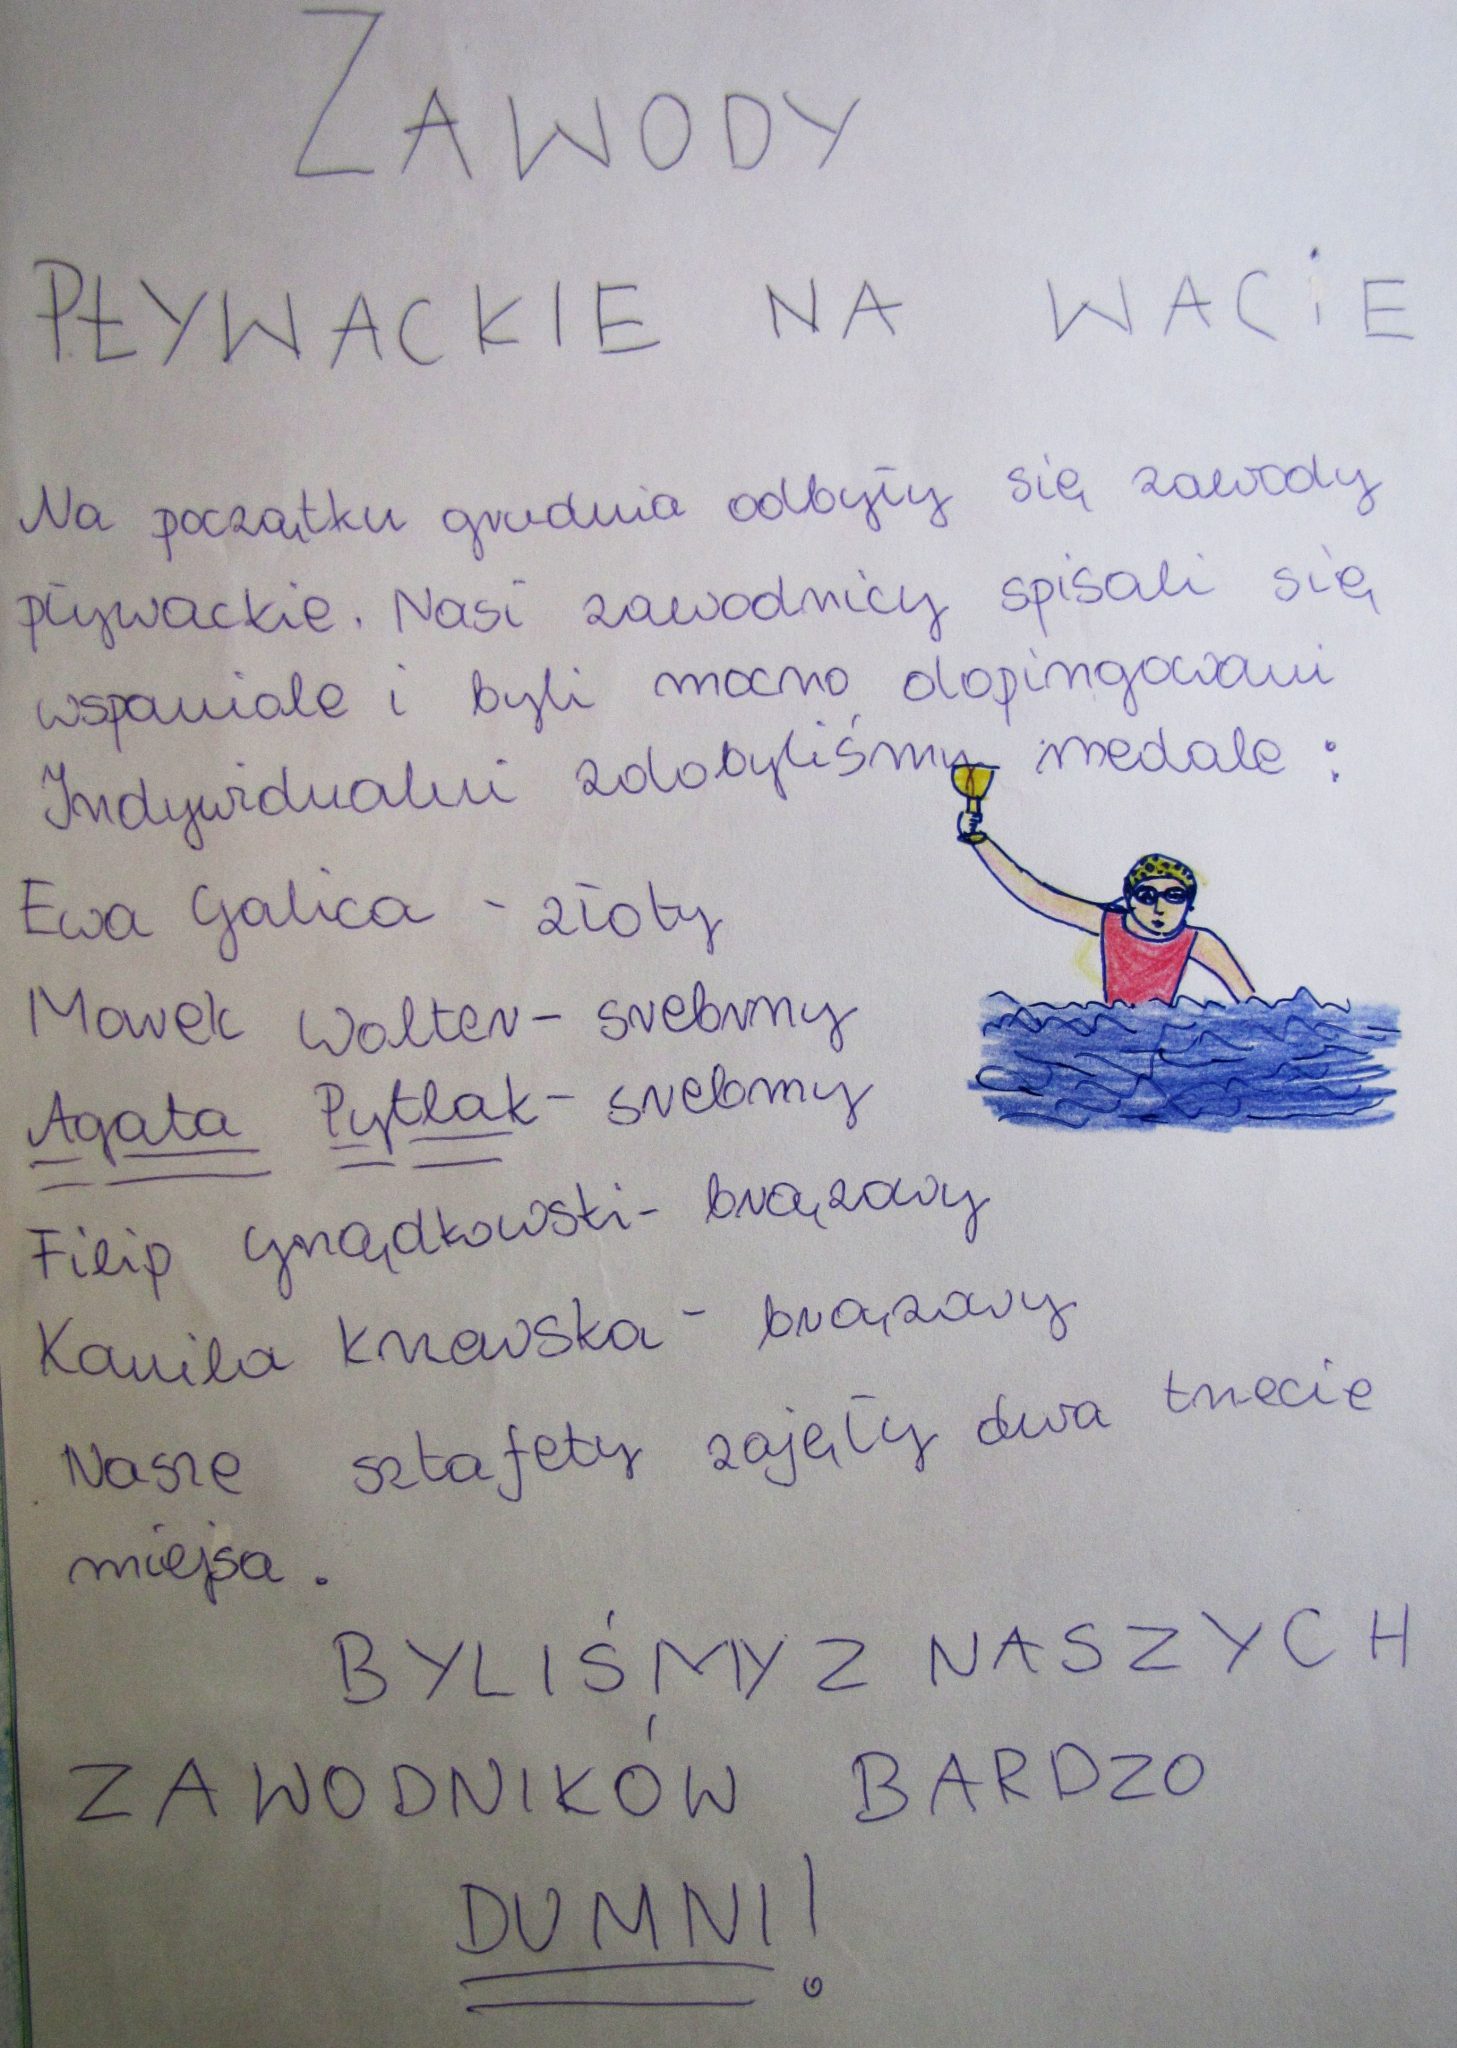 ZAWODY
PŁYWACKIE NA WACiE
Na początku grudnia odbyły się zawody
pływackie. Nasi zawodnicy spisali się
wspaniale i byli mocno dopingowani
Indywidualni zdobyliśmy medale :
Ewa Galica - złoty
Marek Wolter - srebrny
Agata Pytlak - srebrny
Filip Grządkowski - brązowy
Kamila Krzewska - brązowy
Nasze sztafety zajęły dwa trzecie
miejsa .
BYLIŚMY Z NASZYCH
ZAWODNIKÓW BARDZO
DUMNI!